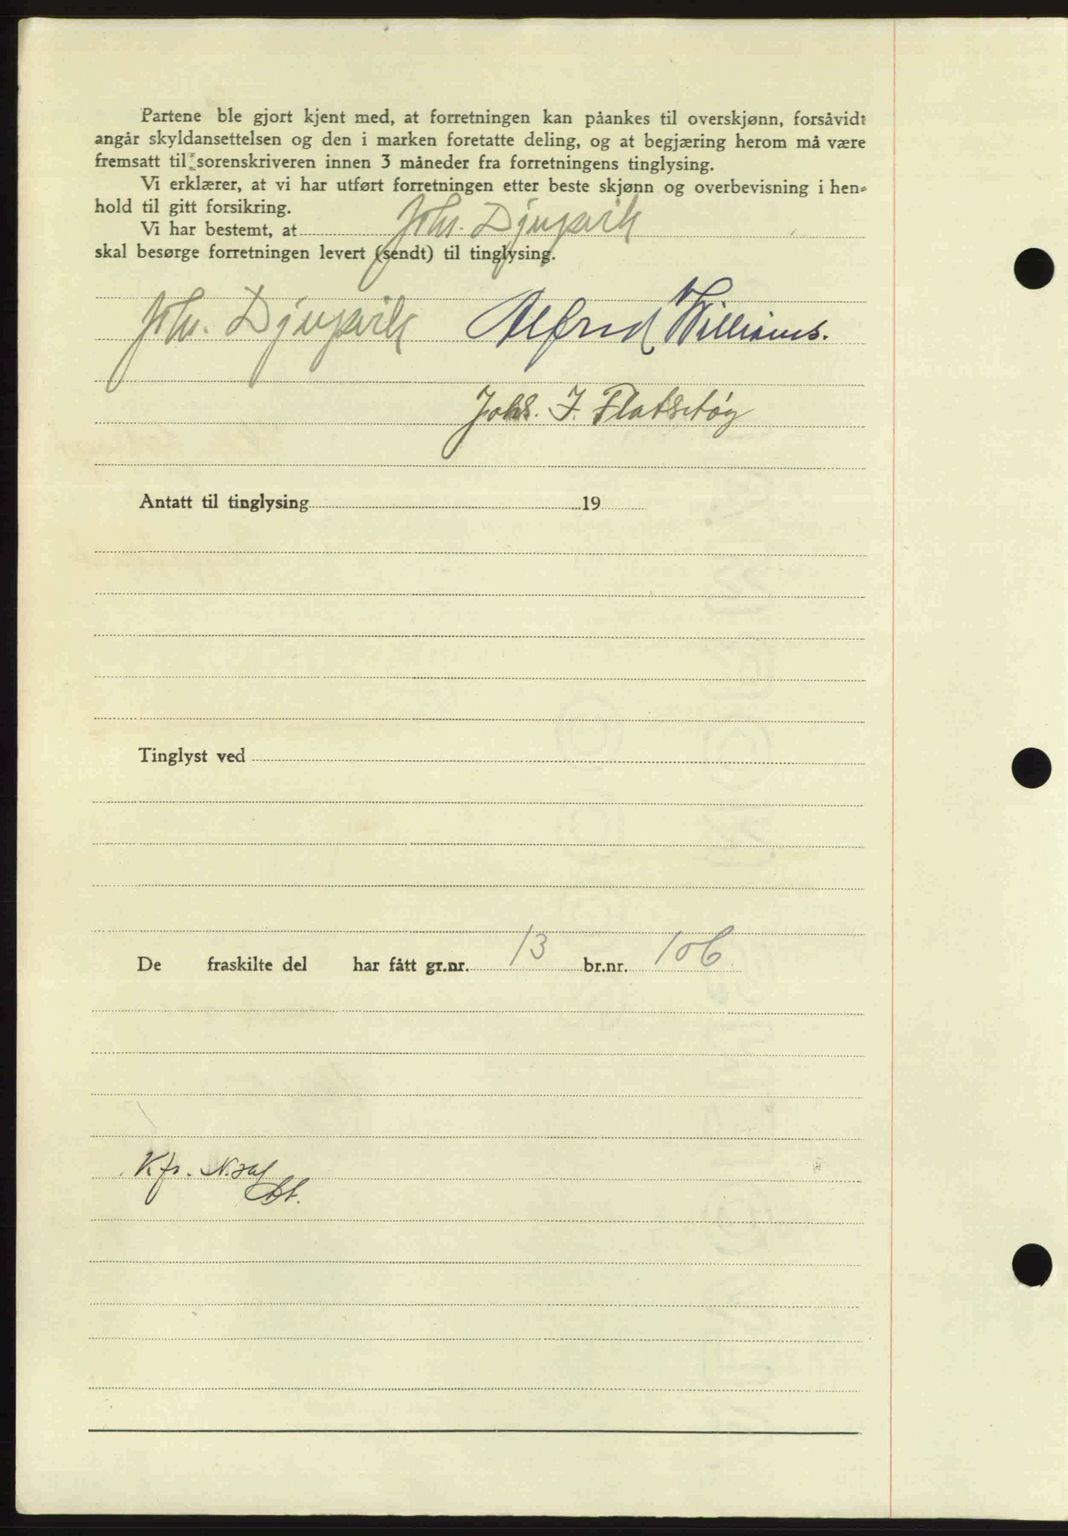 Partene ble gjort kjent med, at forretningen kan påankes til overskjønn, forsåvidt
angår skyldansettelsen og den i marken foretatte deling, og at begjæring herom må være
fremsatt til sorenskriveren innen 3 måneder fra forretningens tinglysing.
Vi erklærer, at vi har utført forretningen etter beste skjønn og overbevisning i hen-
hold til gitt forsikring.
Vi har bestemt, at Joh. Djupvik
skal besørge forretningen levert (sendt) til tinglysing.
Joh. Djupvik Alfred Williams.
Johs. J. Flatsetøy
Antatt til tinglysing 19
Tinglyst ved
De fraskilte del har fått gr.nr. 13 br.nr. 106
Kfr.